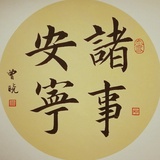 諸事
安寧
曹曉